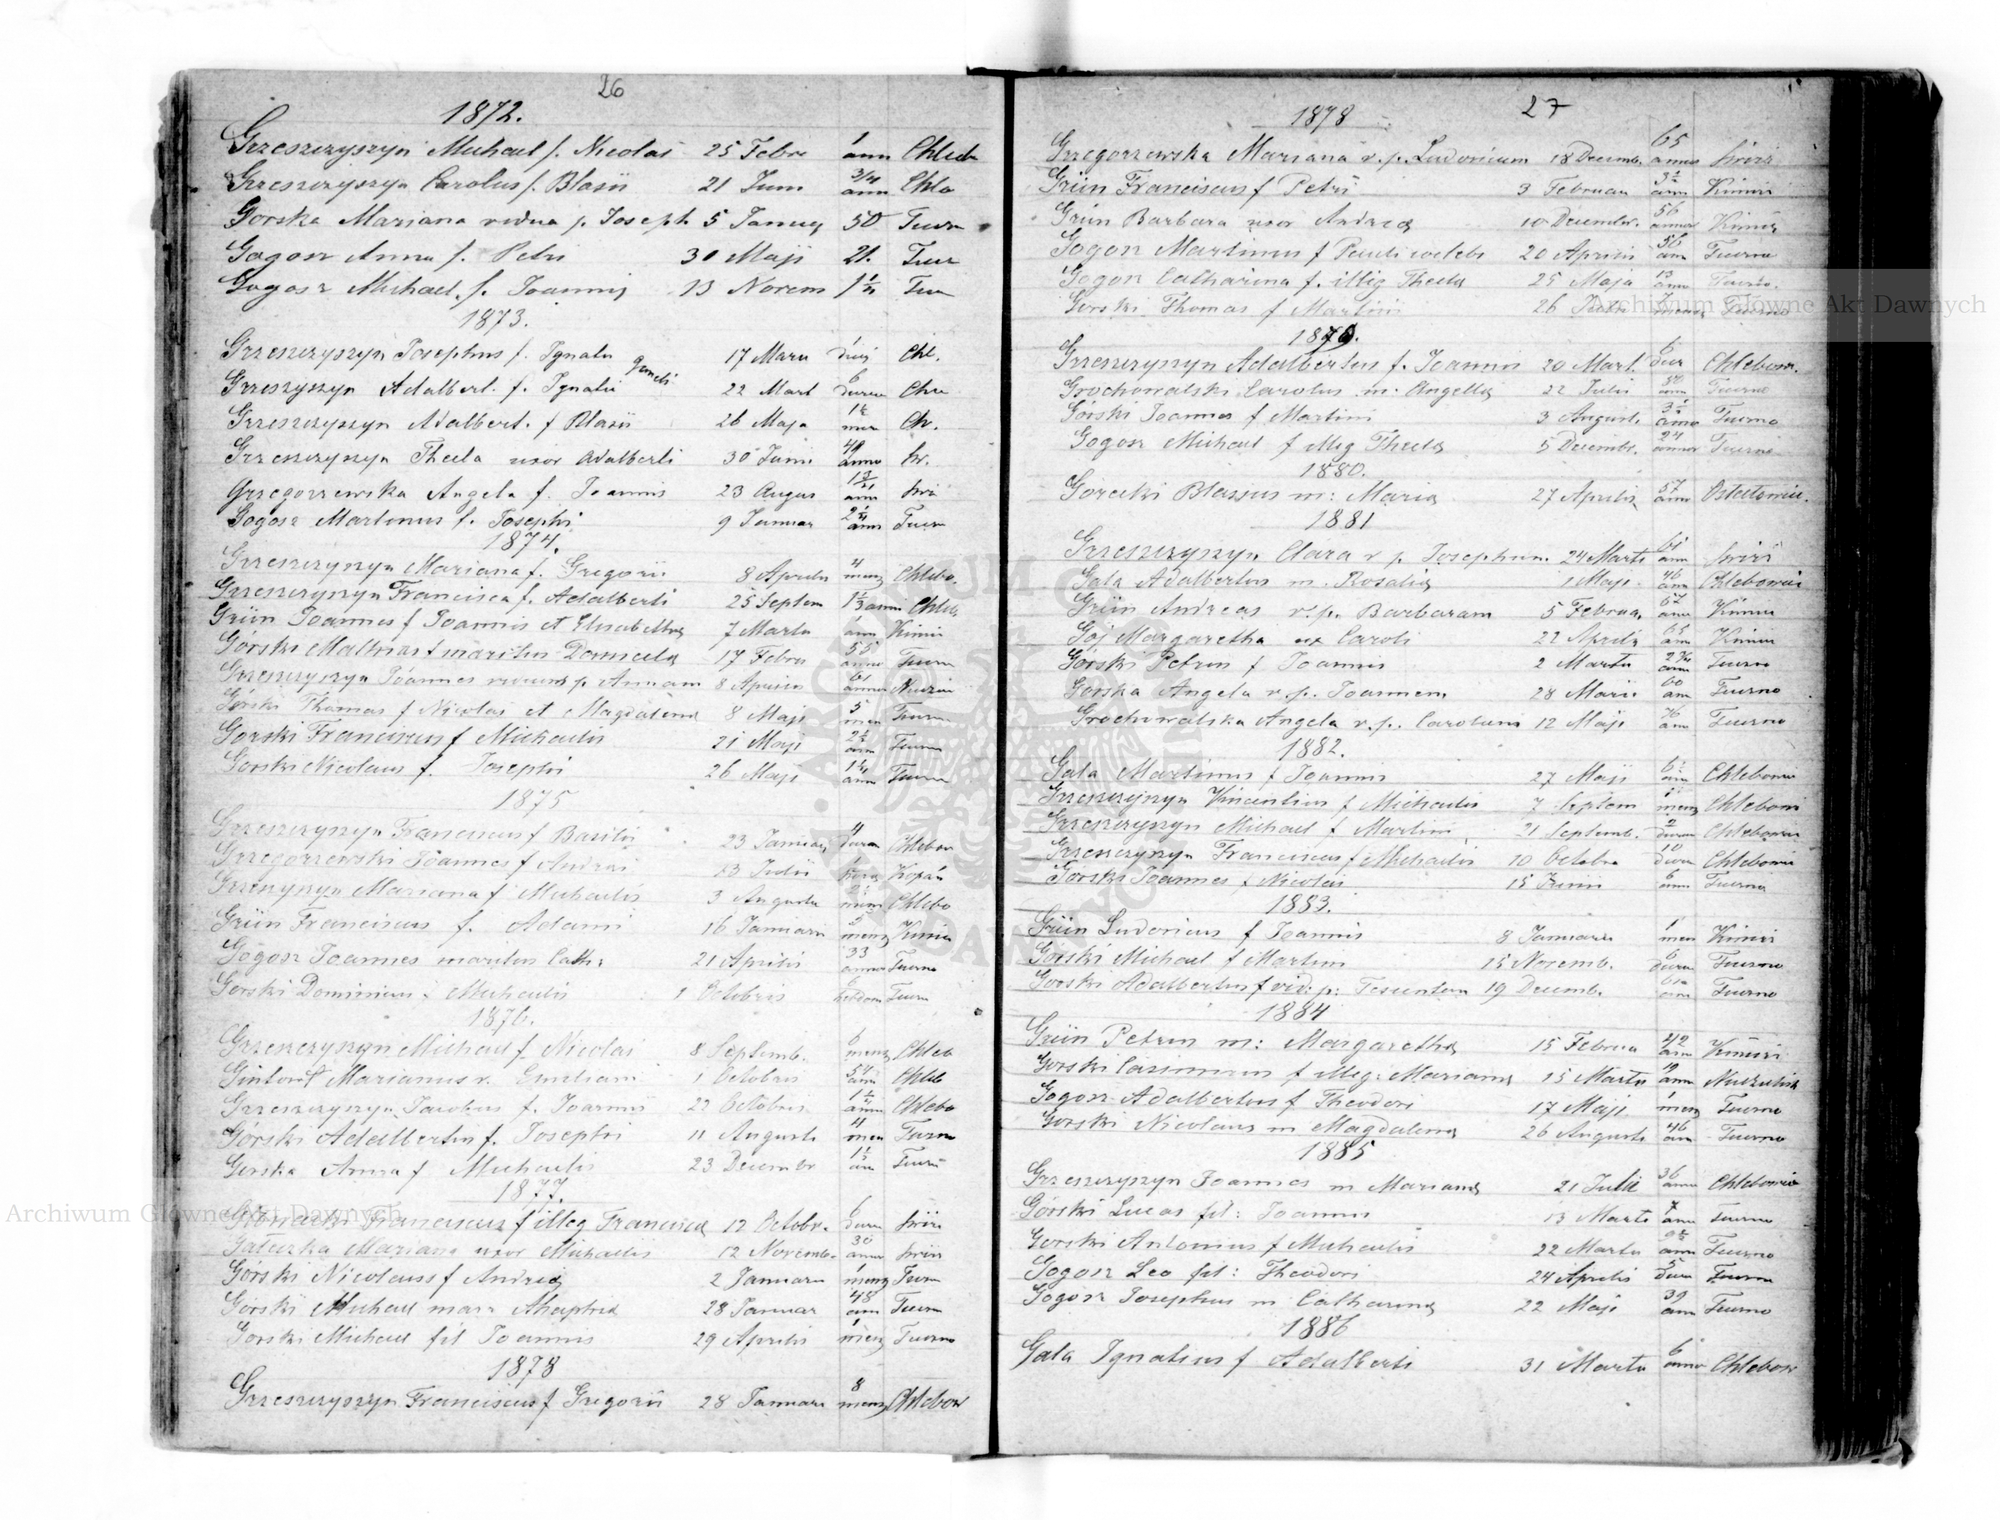 26
1872.
Grzeszczyszyn Michael f. Nicolai 25 Febru 1 ann Chleb
Grzeszczyszyn Carolus f. Blasii 21 Juni 3/4 ann Chle
Gorska Mariana vidua p. Joseph 5 Januar 50 Tuur
Gogosz Anna f. Petri 30 Maji 21. Tuur
Gogosz Michael f. Joannis 13 Novem Tuu
1873.
Grzeszczyszyn Josephus f. Ignatii gemeli 17 Mart Chl.
Grzeszyszyn Adalbert. f. Ignatii 22 Mart 6 dierum Chle
Grzeszczyszyn Adalbert. f Blasii 26 Maja Chl.
Grzeszczyszyn Thecla uxor Adalberti 30 Juni 49 anno
Grzegorzewska Angela f. Joannis 23 Augus
Gogosz Martinus f. Josephi 9 Januar Tuur
1874.
Grzeszczyszyn Mariana f. Gregorii 8 Aprilis 4 mens Chlebo.
Grzeszczyszyn Francisca f. Adalberti 25 Septem 1 1/2 ann Chleb
Grün Joannes f Joannis et Elisabethae 7 Martii 1 ann Kimir
Górski Mathias maritus Danielae 17 Febru 55 anno Tuurn
Grzeszczyszyn Joannes viduus p. Annam 8 Aprilis 61 annor
Górski Thomas f Nicolai et Magdalena 8 Maji 5 men Tuurn
Gorski Franciscus f Michaelis 21 Maji Tuurn
Gorski Nicolaus f. Josephi 26 Maji Tuurn
1875
Grzeszczyszyn Franciscus f Basilii 23 Januar 4 Chlebow
Grzegorzewski Joannes f Andrei 13 Julii Kopań
Grzeszyszyn Mariana f Michaelis 3 Augusti Chlebo
Grün Franciscus f. Adami 16 Januarii mens Kimir
Gogosz Joannes maritus Cath. 21 Aprilis 33 annor Tuurno
Gorski Dominicus f Michaelis 1 Octobris hebdom Tuurn
1876.
Grzeszczyszyn Michael f. Nicolai 8 Septemb. 6 mens Chleb
Gintowt Marianus v. Emiliani 1 Octobris 54 ann Chleb
Grzeszczyszyn Jacobus f. Joannis 22 Octobris Chlebo
Górski Adalbertus f. Josephi 11 Augusti 4 men Tuurno
Gorska Anna f Michaelis 23 Decembr Tuurn
1877.
Franciscus f illeg Francisca 12 Octobr. 6 dierum
Gałuszka Mariana uxor Michaelis 12 Novemb. 30 annor
Górski Nicolaus f Andrea 2 Januarii 1 mens Tuurn
Gorski Michael mar. Ahaphia 28 Januar 48 ann Tuurn
Gorski Michael fil Joannis 29 Aprilis 1 mens Tuurno
1878
Grzeszczyszyn Franciscus f Gregorii 28 Januar 8 mens Chlebow
27
1878
Grzegorzewska Mariana v. p. Ludovicum 18 Decemb. 65 annos
Grün Franciscus f Petri 3 Februar Kimir
Grün Barbara uxor Andrea 10 Decembr. 56 annor Kimir
Gogosz Martinus f Pauli coelebs 20 Aprilis 56 ann Tuurno
Gogosz Catharina f. illeg Thecla 25 Maja 13 ann Tuurno.
Gorski Thomas f Martini 26 Tuurno
1879.
Grzeszczyszyn Adalbertus f. Joannis 20 Mart. 6 dier Chlebow.
Grochowalski Carolus m. Angella 22 Julii Tuurno
Górski Joannes f Martini 3 August. Tuurno
Gogosz Michael f illeg Thecla 5 Decembr. 24 annor Tuurno
1880.
Gorecki Blasius m: Maria 27 Aprilis 57 ann
1881
Grzeszczyszyn Clara v p. Josephum 24 Martii 61 ann
Gala Adalbertus m. Rosalia 1 Maji 46 ann Chlebowic
Grün Andreas v. p. Barbaram 5 Februar 67 ann Kimir
Goj Margaretha ux Caroli 22 Aprilis 65 ann Kimir
Górski Petrus f Joannis 2 Martii 2 3/4 ann Tuurno
Górska Angela v. p. Joannem 28 Maii 60 an Tuurno
Grochowalska Angela v. p. Carolum 12 Maji 76 ann Tuurno
1882.
Gala Martinus f Joannis 27 Maji Chlebowic
Grzeszczyszyn Vincentius f Michaelis 7 Septem mens Chlebowi
Grzeszczyszyn Michael f Martini 21 Septemb. dierum Chlebowic
Grzeszczyszyn Franciscus f Michaelis 10 Octobr 10 dieru Chlebowic
Gorski Joannes f Nicolai 15 Junii 6 ann Tuurno
1883.
Grün Ludovicus f Joannis 8 Januarii 1 men Kimir
Górski Michael f Martini 15 Novemb. 6 dieru Tuurno
Gorski Adalbertus vid: p: 19 Decemb. Tuurno
1884
Grün Petrus m: Margaretha 15 Februa 42 ann Kimiri
Gorski Casimirus f illeg: Mariana 15 Martii 19 ann
Gogosz Adalbertus f Theodori 17 Maji mens Tuurno
Gorski Nicolaus m Magdalena 26 Augusti 46 an Tuurno
1885
Grzeszczyszyn Joannes m Mariana 21 Julii 36 anno Chlebowic
Górski Lucas fil: Joannis 13 Martii 7 ann Tuurno
Gorski Antonius f Michaelis 22 Martii Tuurno
Gogosz Leo fil: Theodori 24 Aprilis 5 dieru Tuurno
Gogosz Josephus m Catharina 22 Maji 39 ann Tuurno
1886
Gala Ignatius f Adalberti 31 Martii 6 anno Chlebow
Archiwum Główne Akt Dawnych
Archiwum Główne Akt Dawnych